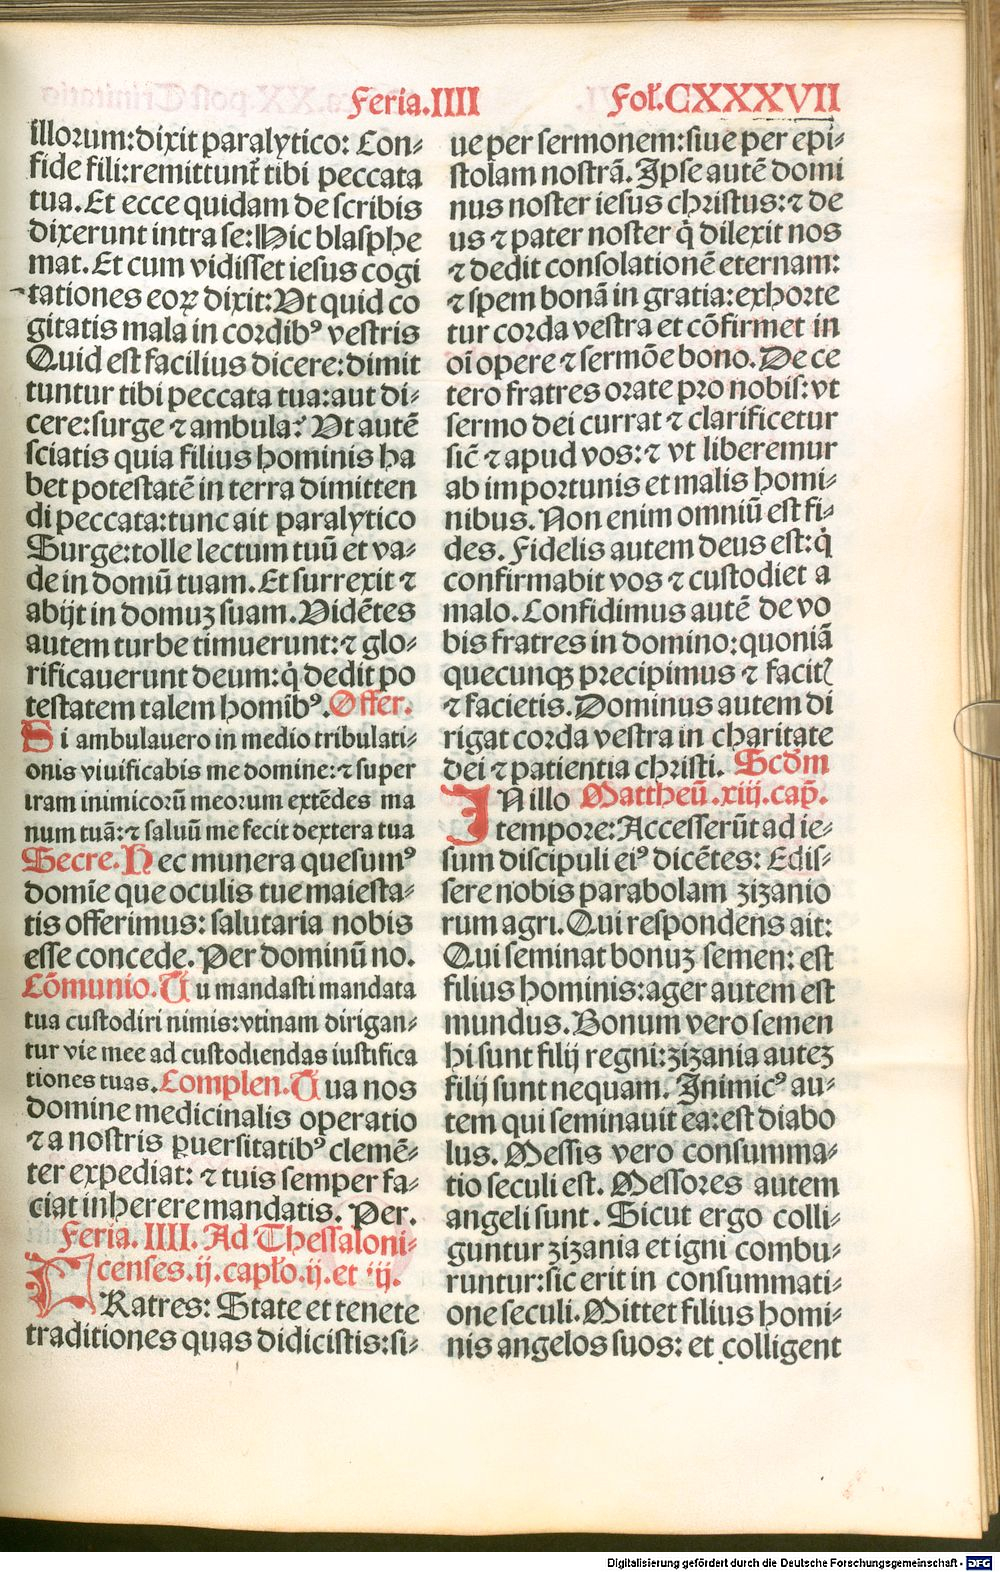 Feria.IIII
Fol.CXXXVII
illorum:dixit paralytico: Con⸗
fide fili:remittunt᷑ tibi peccata
tua.Et ecce quidam de scribis
dixerunt intra se:Hic blasphe
mat.Et cum vidisset iesus cogi
tationes eoꝝ dixit:Vt quid co
gitatis mala in cordibꝰ vestris
Quid est facilius dicere:dimit
tuntur tibi peccata tua:aut di⸗
cere:surge ⁊ ambula? Vt autē
sciatis quia filius hominis ha
bet potestatē in terra dimitten
di peccata:tunc ait paralytico
Surge:tolle lectum tuū et va⸗
de in domū tuam.Et surrexit ⁊
abijt in domuꝫ suam.Vidētes
autem turbe timuerunt:⁊ glo⸗
rificauerunt deum:q̇ dedit po
testatem talem homībꝰ.Offer.
Si ambulauero in medio tribulati⸗
onis viuificabis me domine:⁊ super
iram inimicorū meorum extēdes ma
num tuā:⁊ saluū me fecit dextera tua
Secre.Hec munera quesumꝰ
domīe que oculis tue maiesta⸗
tis offerimus: salutaria nobis
esse concede. Per dominū no.
Cōmunio.Tu mandasti mandata
tua custodiri nimis:vtinam dirigan⸗
tur vie mee ad custodiendas iustifica
tiones tuas.Complen.Tua nos
domine medicinalis operatio
⁊ a nostris ꝑuersitatibꝰ clemē⸗
ter expediat: ⁊ tuis semper fa⸗
ciat inherere mandatis. Per.
Feria. IIII. Ad Thessaloni⸗
censes.ij.capło.ij.et iij.
FRatres: State et tenete
traditiones quas didicistis:si⸗
ue per sermonem:siue per epi⸗
stolam nostrā. Ipse autē domi
nus noster iesus christus:⁊ de
us ⁊ pater noster q̇ dilexit nos
⁊ dedit consolationē eternam:
⁊ spem bonā in gratia:exhorte
tur corda vestra et cōfirmet in
oī opere ⁊ sermōe bono. De ce
tero fratres orate pro nobis:vt
sermo dei currat ⁊ clarificetur
sic̄ ⁊ apud vos:⁊ vt liberemur
ab importunis et malis homi⸗
nibus. Non enim omniū est fi⸗
des. Fidelis autem deus est:q̇
confirmabit vos ⁊ custodiet a
malo. Confidimus autē de vo
bis fratres in domino:quoniā
quecunqꝫ precipimus ⁊ facit᷑
⁊ facietis. Dominus autem di
rigat corda vestra in charitate
dei ⁊ patientia christi. Scd̄m
IN illo Mattheū.xiij.cap̄.
tempore:Accesserūt ad ie⸗
sum discipuli eiꝰ dicētes: Edis⸗
sere nobis parabolam zizanio
rum agri. Qui respondens ait:
Qui seminat bonuꝫ semen: est
filius hominis:ager autem est
mundus. Bonum vero semen
hi sunt filij regni:zizania auteꝫ
filij sunt nequam. Inimicꝰ au⸗
tem qui seminauit ea:est diabo
lus. Messis vero consumma⸗
tio seculi est. Messores autem
angeli sunt. Sicut ergo colli⸗
guntur zizania et igni combu⸗
runtur:sic erit in consummati⸗
one seculi. Mittet filius homi⸗
nis angelos suos: et colligent
Digitalisierung gefördert durch die Deutsche Forschungsgemeinschaft - DFG